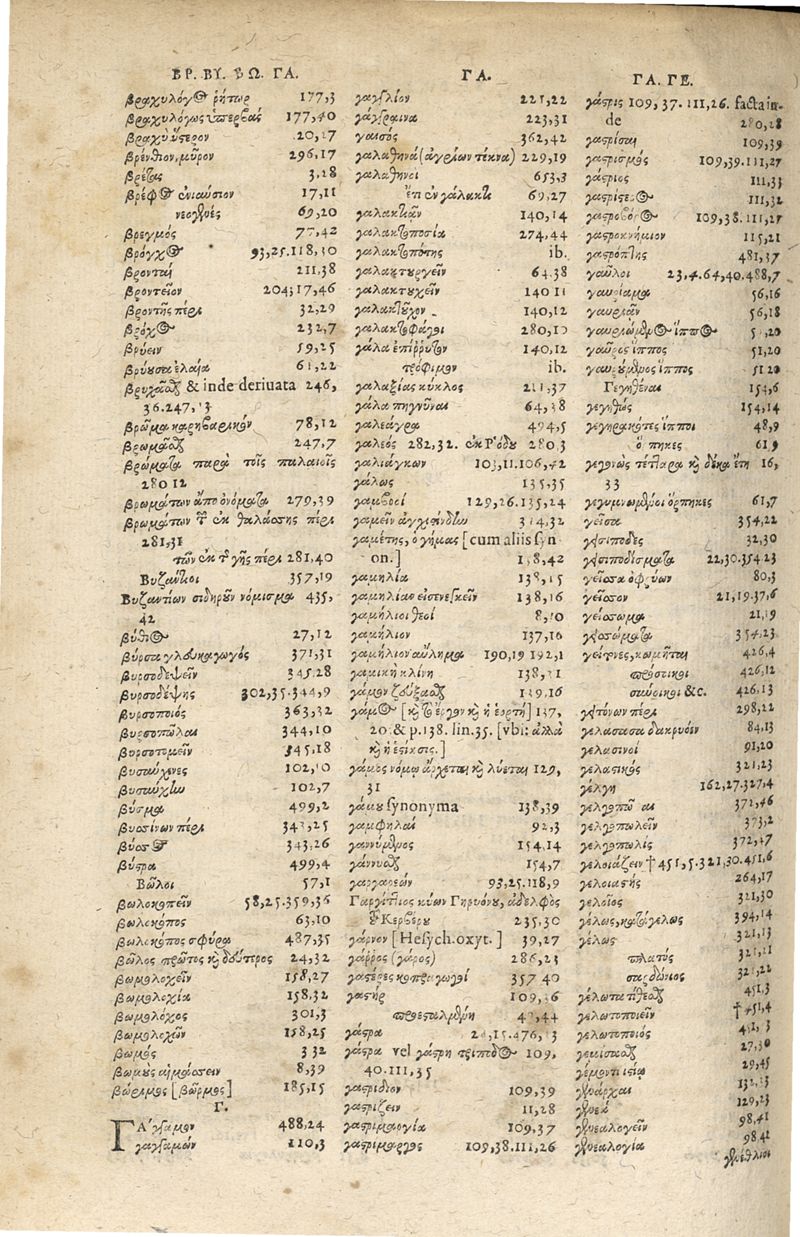 ΒΡ. ΒΥ. ΒΩ. ΓΑ.
βραχυλόγος ῥήτωρ 177,3
βραχυλόγως 177,40
βραχὺ ὕστερον 20,17
βρένθιον, μῦρον 296,17
βρέτας 3.18
βρέφος ἐνιαύσιον 17,11
νεογενές 69,20
βρεγμός 77,42
βρόγχος 93,25.118,30
βρονταί 211,38
βροντεῖον 204;17,46
βροντῆς πέρι 32,29
βρόχος 232,7
βρύειν 59,25
βρύουσα ἐλαία 61,22
& inde deriuata 246,
36.247,13
βρῶμα καρηβαρικόν 78,12
βρωμᾶσθαι 247,7
βρώματα παρὰ τοῖς παλαιοῖς
280 12
βρωμάτων ἀπὸ ὀνόματα 279,39
βρωμάτων τῶν ἐκ θαλάσσης πέρι
281,31
τῶν ἐκ τῆς γῆς πέρι 281,40
Βυζάντιοι 357,19
Βυζαντίων σιδηρῶν νόμισμα 435,
42
βύθος 27,12
371,31
βυρσοδεψεῖν 345.28
βυρσοδέψης 302,35.344,9
βυρσοποιός 363,32
βυρσοπῶλαι 344,10
βυρσοτομεῖν 345,18
βυσαύχενες 102,10
102,7
βύσμα 499,2
βυσσίνων πέρι 342,25
βύσσος 343,26
βύστρα 499,4
Βῶλοι 57,1
βωλοκοπεῖν 58,25.359,36
βωλοκόπος 63,10
βωλοκόπος σφῦρα 487,35
βῶλος πρῶτος καὶ δεύτερος 24,32
βωμολοχεῖν 158,27
βωμολοχία 158,32
βωμολόχος 301,3
βωμολοχῶν 158,25
βωμός 3 32
βωμοὺς αἱμάσσειν 8,39
βώριμος [βῶρμος] 185,15
Γ.
ΓΑγγαμον 488,24
γαγγαμών 110,3
ΓΑ.
γαγγλίον 221,22
γάγγραινα 223,31
γαισός 362,42
γαλαθηνά (ἀγρίων τέκνα) 229,19
γαλαθηνοι 653,3
ἐπ ἐν γάλακτι 69,27
γαλακτιᾷν 140,14
γαλακτοποσία 274,44
γαλακτοπότης ib.
γαλακτουργεῖν 64.38
γαλακτουχεῖν 140 11
γαλακτοῦχον 140,12
γαλακτοφάγοι 280,10
γάλα ἐπίρρυτον 140,12
τρόφιμον ib.
γαλαξίας κύκλος 211,37
γάλα πηγνῦναι 64,38
γαλεάγρα 494,5
γαλεός 282,32. ἐκ Ῥόδου 280,3
γαλιάγκων 103,11.106,42
γάλως 135,35
γαμβροί 129,26.135,24
γαμεῖν 314,32
γαμέτης, ὁ γήμας [cum aliis syn
on.] 138,42
γαμηλία 138,15
γαμηλίαν εἰσενεγκεῖν 138,16
γαμήλιοι θεοί 8,10
γαμήλιον 137,10
γαμήλιον αὔλημα 190,19 192,1
γαμικὴ κλίνη 138,31
γάμον ζεύξασθαι 139,16
γάμος [καὶ τὸ ἔργον καὶ ἡ ἑορτή] 137,
20. & p.138. lin.35. [vbi: ἀλλὰ
καὶ ἡ ἑστίασις.]
γάμος νόμῳ ἄρχεται καὶ λύεται 129,
31
γάμου synonyma 138,39
γαμφηλαί 92,3
γαννύμενος 154,14
γάννυσθαι 154,7
γαργαρεών 93,25.118,9
Γαργίττιος κύων Γηρυόνου, ἀδελφὸς
τοῦ Κερβέρου 235,30
γάρνον [Hesych. oxyt.] 39,27
γάρρος (γάρος) 286,23
γαστέρες κοπραγωγοί 357 40
γαστήρ 109,36
προεσταλμένη 42,44
γάστρα
γάστρα vel γάστρη τρίποδος 109,
40.111,35
γαστρίδιον 109,39
γαστρίζειν 11,28
γαστριμαργία 109,37
γαστρίμαργος 109,38.111,26
ΓΑ. ΓΕ.
γάστρις 109, 37. 111,26. facta in-
de 280,28
γαστρίσαι 109,39
γαστρισμός 109,39.111,27
γάστριος 111,33
111,32
γαστροβόρος 109,38.111,27
γαστροκνήμιον 115,21
γαστρόπτης 481,37
γαῦλοι 23,4.64,40.488,7
γαυρίαμα 56,16
γαυριᾷν 56,18
γαυριώμενος ἵππος
γαῦρος ἵππος 51,20
γαυρούμενος ἵππος 51 20
Γεγηθέναι 154,6
γεγηθώς 154,14
γεγηρακότες ἵπποι 48,9
61 9
γεγονὼς τέτταρα καὶ δέκα ἔτη 16,
33
γεγυμνωμένοι ὄρπηκες 61,7
γεῖσα 354,22
γεισίποδες 32,30
γεισιποδίσματα 22,30.354 23
γεῖσσα ὀφρύων 80,3
γεῖσσον 21,19.37,6
γείσσωμα 21,19
γεισσώματα 354,23
γείτονες, κωμῆται 426,4
πρόσοικοι 426,12
σύνοικοι &c. 426,13
γειτόνων πέρι 298,22
γελάσασα δακρυόεν 84,13
γελασινοί 91,20
γελαστικός 321,23
γέλγη 162,27.327,4
372,46
γελγοπωλεῖν 373,2
γελγόπωλις 372,47
γελοιάζειν † 455,5.321,30.451,6
γελοιαστής 264,17
γελοῖος 321,30
γέλως, κατάγελως 394,14
γέλως 321,13
πλατύς 321,21
σαρδόνιος 321,22
γέλωτα τίθεσθαι 451,3
γελωτοποιεῖν † 451,4
γελωτοποιός
γεμίσασθαι 27,30
29,45
γενεάρχαι
γενεά 129,23
γενεαλογεῖν 98,41
γενεαλογία 98 41
γενέθλιοι